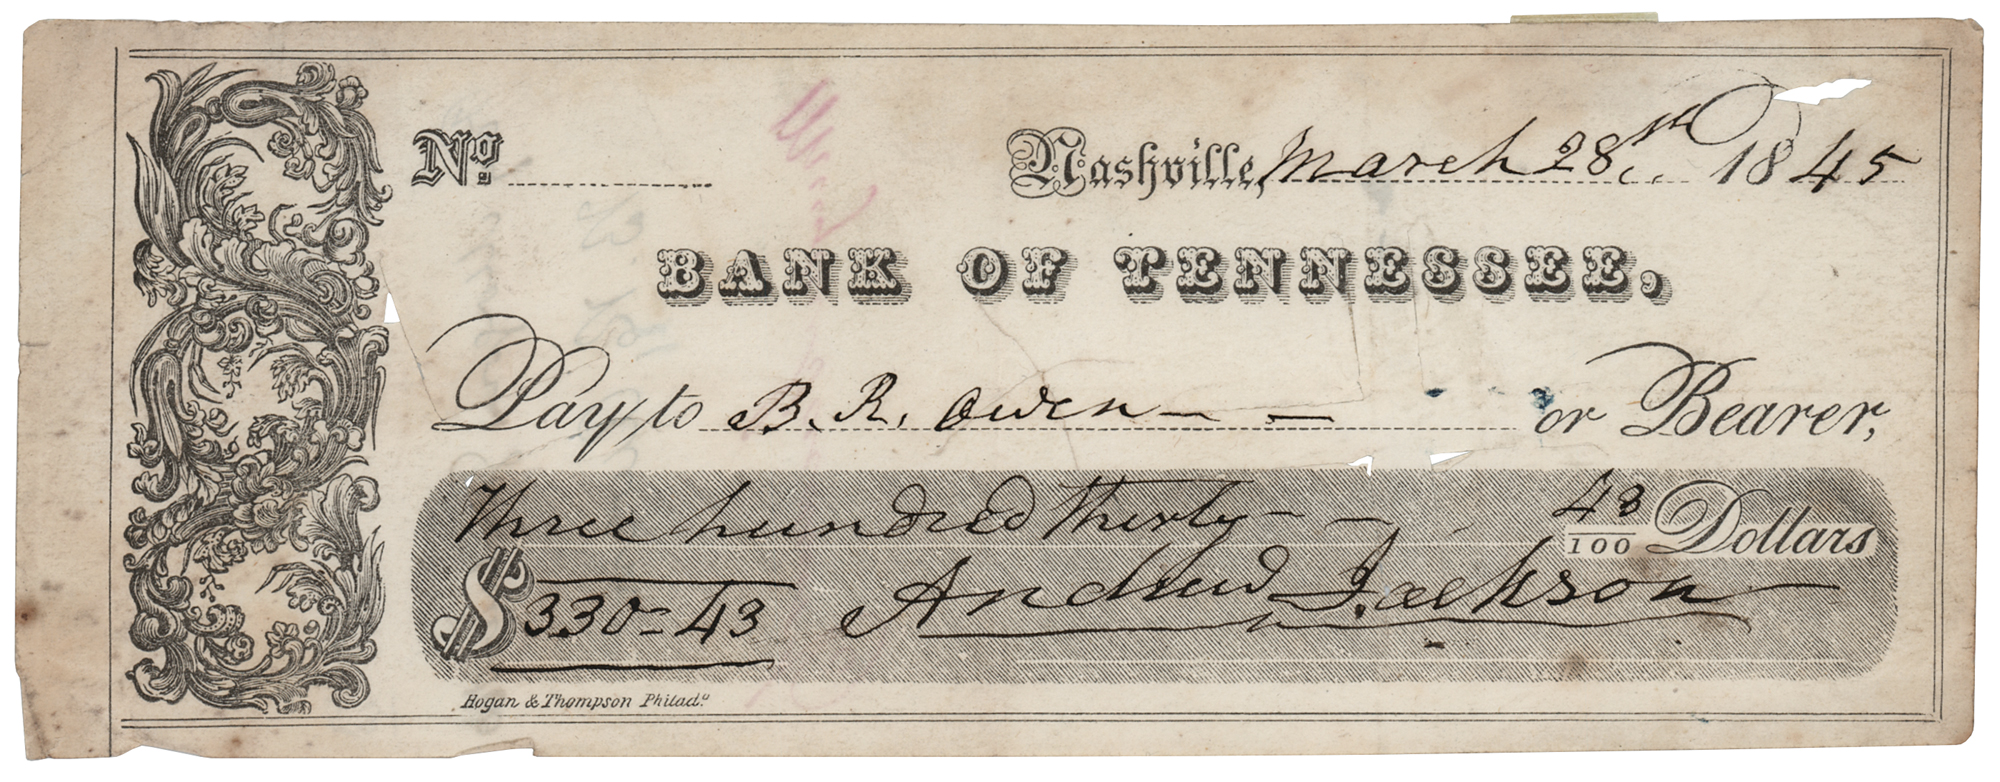 No. Nashville, March 28th, 1845
BANK OF TENNESSEE,
Pay to B. R. Owen — — or Bearer,
Three hundred thirty - - 43/100 Dollars
$330=43 Andrew Jackson
Hogan & Thompson Philada.